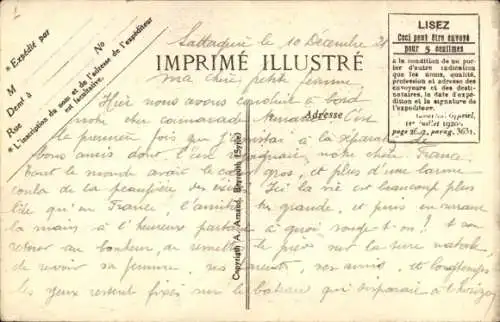 * Expédié par
M
Dent à
Rue
No
* L'inscription du nom et de l'adresse de l'expéditeur
est facultative.
LISEZ
Ceci peut être envoyé
pour 5 centimes
à la condition de ne por-
ter d'autre indication
que les nom, qualité,
profession et adresse des
envoyeurs et des desti-
nataires, la date d'expé-
dition et la signature de
l'expéditeur.
(Journal Officiel,
1er avril 1920,
page 2619, parag. 363).
IMPRIMÉ ILLUSTRÉ
Adresse
Copyright A. Amand, Beyrouth (Syrie)
le 10 Décembre
ma chère petite femme
Hier nous avons conduit à bord
notre cher camarade c'est
la première fois que j' à la séparation de
bons amis dont l'un notre chère France
tout le monde avait le cœur gros, et plus d'une larme
coula de la paupière des Ici la vie est beaucoup plus
liée qu'en France, l'amitié plus grande, et puis en serrant
la main à l'heureux à quoi songe-t-on? à son
retour au bonheur, de remettre le pied sur la terre natale,
de revoir sa femme, ses parents, ses amis, et longtemps
les yeux restent fixés sur le bateau qui disparaît à l'horizon